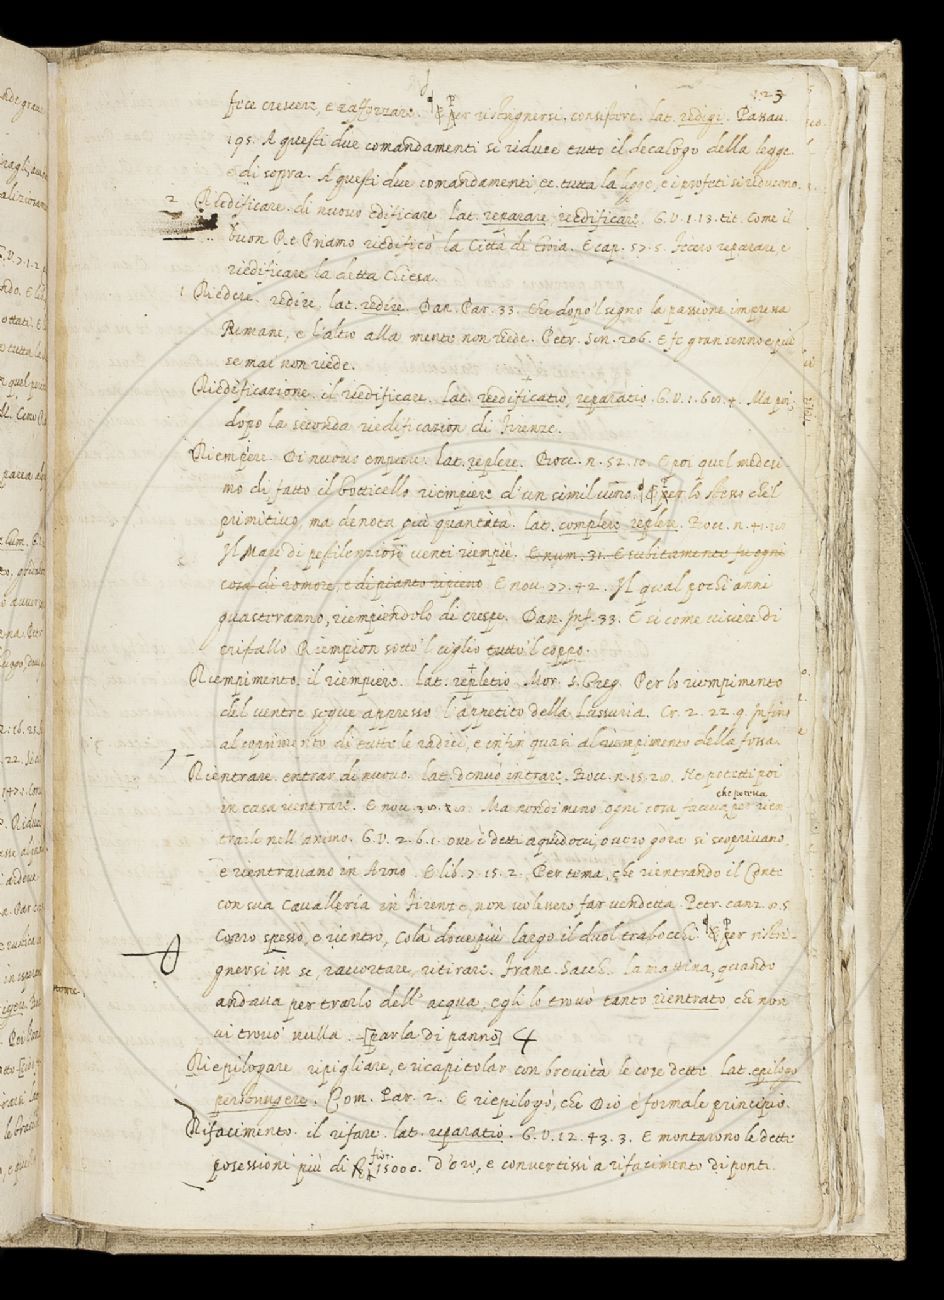 123
fece crescere, e rafforzare. § Per ristrignersi, consistere. lat. redigi. Passav.
195. A questi due comandamenti si riduce tutto il decalogo della legge.
e di sopra. A questi due comandamenti, ec. tutta la legge, e i profeti si riducono.
2 Riedificare. di nuovo edificare lat. reparare reedificare. G.V.1.13. tit. Come il
buon Re Priamo riedificò la Città di Troia. E cap. 57.5. Fecero reparare, e
riedificare la detta Chiesa.
1 Riedere. redire, lat. redire. Dan. Par. 33. Che dopo 'l sogno la passione impressa
Rimane, e l'altro alla mente non riede. Petr. Son. 206. E fe gran senno, e più
se mai non riede.
Riedificazione. il riedificare. lat. reedificatio, reparatio. G.V.1.60.4. Ma poi
dopo la seconda riedificazion di Firenze.
Riempiere. Di nuovo empiere. lat. replere. Bocc. n. 52.10. E poi quel medesi-
mo dì, fatto il botticello riempiere d'un simil vino. § Per lo stesso che 'l
primitivo, ma denota più quantità. lat. complere replere. Bocc. n. 41.
Il Mare di pestilenziosi venti riempiè. E num. 31. E subitamente fu ogni
cosa di romore, e di pianto ripieno E nov. 77.42. Il qual pochi anni
guasteranno, riempiendolo di crespe. Dan. Inf. 33. E sì come visiere di
cristallo Riempion sotto 'l ciglio tutto 'l coppo.
Riempimento. il riempiere. lat. repletio Mor. S. Greg. Per lo riempimento
del ventre segue appresso l'appetito della Lussuria. Cr. 2.22.9. Infino
al coprimento di tutte le radici, e infin quasi al riempimento della fossa.
Rientrare. entrar di nuovo. lat. denuò intrare. Bocc. n. 15.20. Se potetti poi
in casa rientrare. E nov. Ma nondimeno ogni cosa faceva, che poteva per rien-
trarle nell'animo. G.V.2.6.1. ove i detti aquidocci, overo gora si scoprivano,
e rientravano in Arno. E lib. 7.15.2. Per tema, che rientrando il Conte
con sua Cavalleria in Firenze, non volessero far vendetta. Petr. canz. 8.5
Corro spesso, e rientro, Colà dove più largo il duol trabocchi. § Per ristri-
gnersi in se, raccortare, ritirare. Franc. Sacch. la mattina, quando
andava per trarlo dell'acqua, egli lo trovò tanto rientrato che non
vi trovò nulla. [parla di panno]
Riepilogare ripigliare, e ricapitolar con brevità le cose dette lat. epilogo
perstringere. Com. Par. 2. E riepilogò, che Dio è formale principio.
Rifacimento. il rifare. lat. reparatio. G.V.12.43.3. E montarono le dette
posessioni più di fior. 15000. d'oro, e convertissi a rifacimento di ponti.